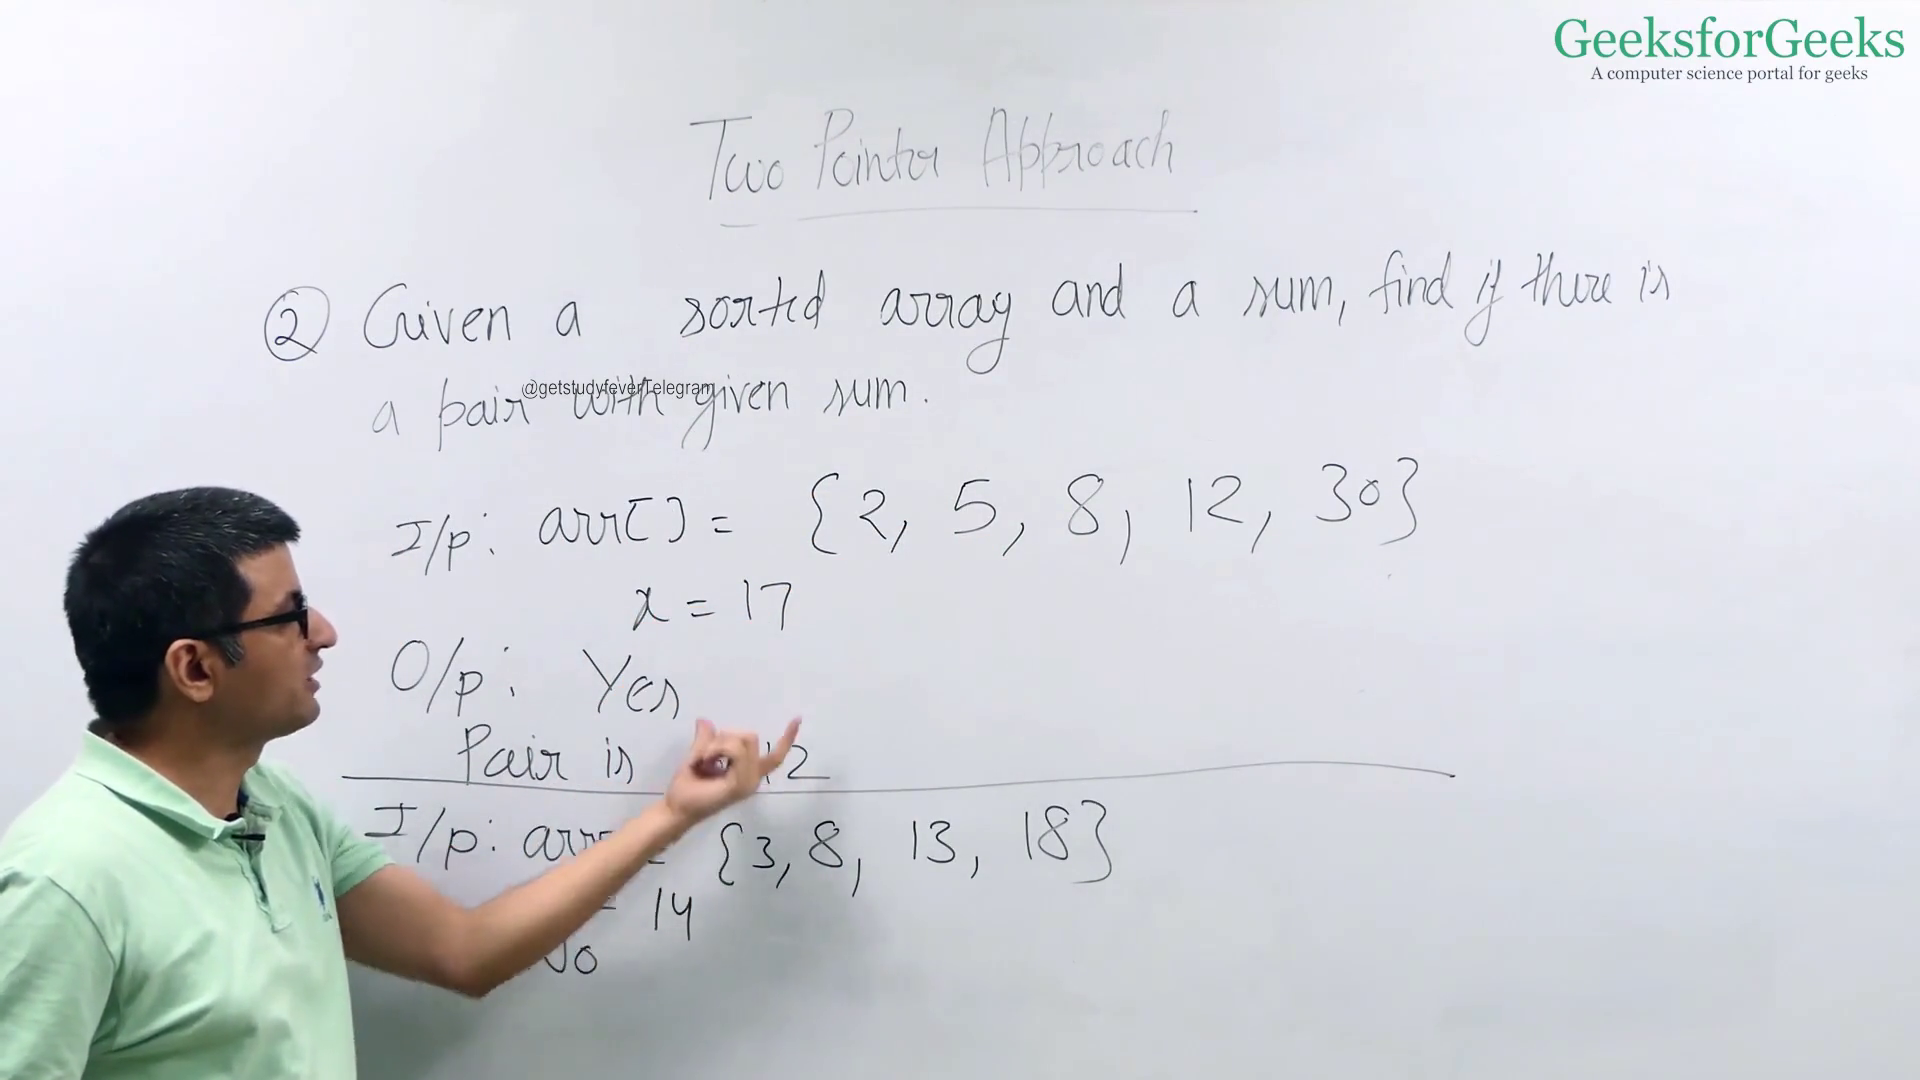 GeeksforGeeks
A computer science portal for geeks
Two Pointer Approach
② Given a sorted array and a sum, find if there is
a pair with given sum.
@getstudyfeverTelegram
I/p: arr[] = {2, 5, 8, 12, 30}
x = 17
O/p: Yes
Pair is 12
I/p: = {3, 8, 13, 18}
= 14